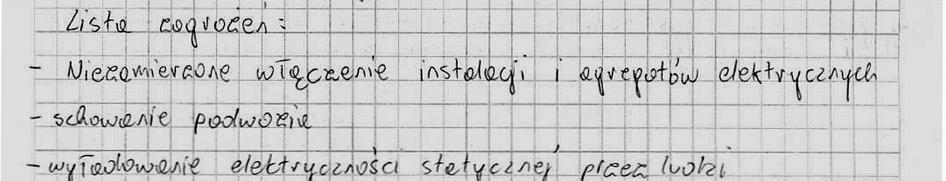 Lista zagrożeń:
- Niezamierzone włączenie instalacji i agregatów elektrycznych
- schowanie podwozia
- wyładowanie elektryczności statycznej przez ludzi